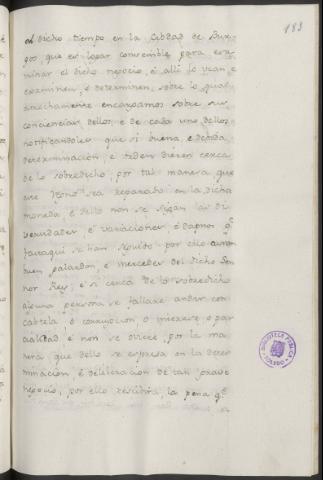 183
el dicho tiempo en la Cibdad de Bur-
gos que es logar convenible para exa-
minar el dicho negocio, é alli lo vean, e
examinen, é determinen, sobre lo qual
estrechamente encargamos sobre sus
conciencias dellos, e de cada uno dellos
notificandoles que si buena, e debida
determinacion, e orden dieren cerca
de lo sobredicho, por tal manera que
este Regno sea reparado en la dicha
moneda, é dello non se sigan las di-
versidades, é variaciones, é dapnos q.
fastaqui se han seguido, por ello avran
buen galardon, é mercedes del dicho Se-
ñor Rey; é si cerca de lo sobredicho
alguna persona se fallare andar con
cabtela, ó corrupcion, o interese, o par
cialidad, é non se oviere por la ma
nera que dello se espera en la deter
minacion, é deliberacion de tan grave
negocio, por ello rescibirá la pena q.
BIBLIOTECA PUBLICA
TOLEDO